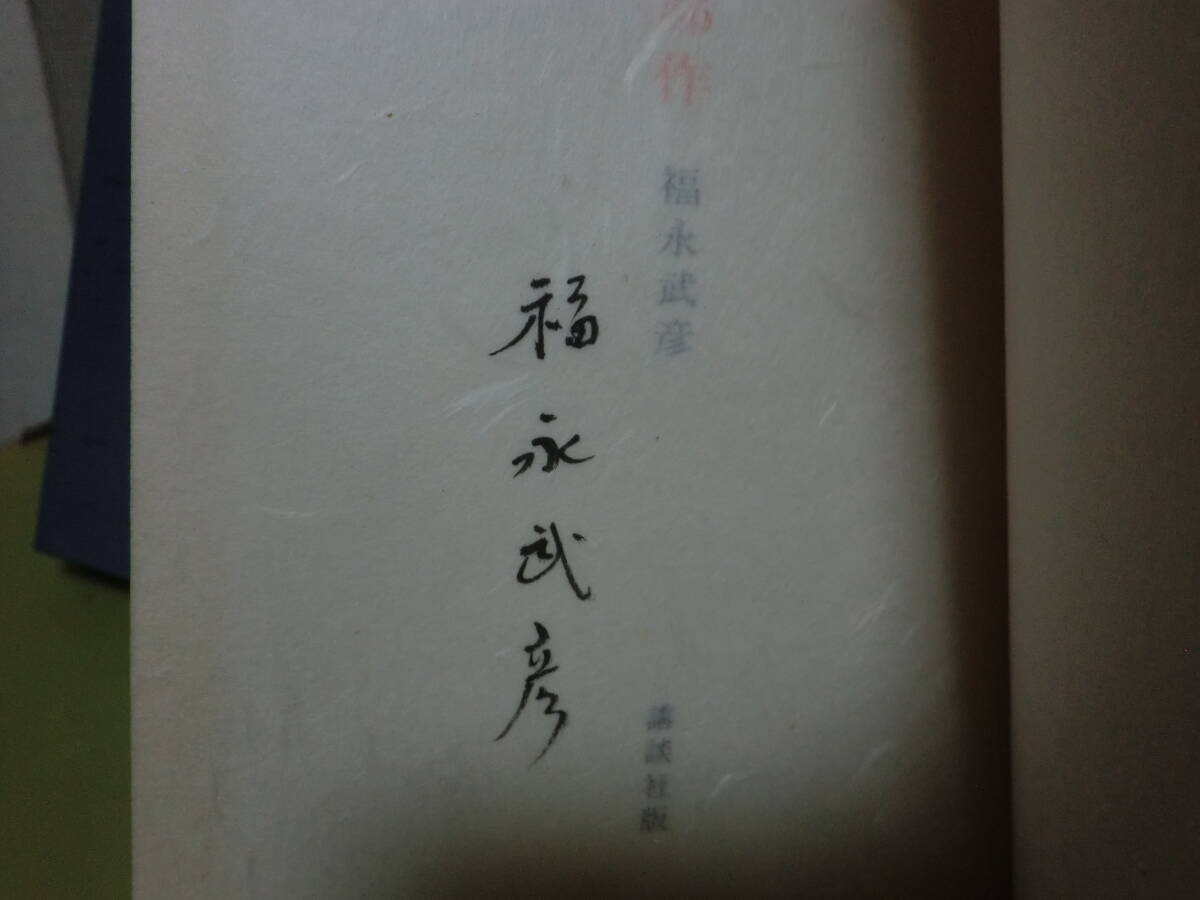 作
福永武彦
講談社版
福永武彦